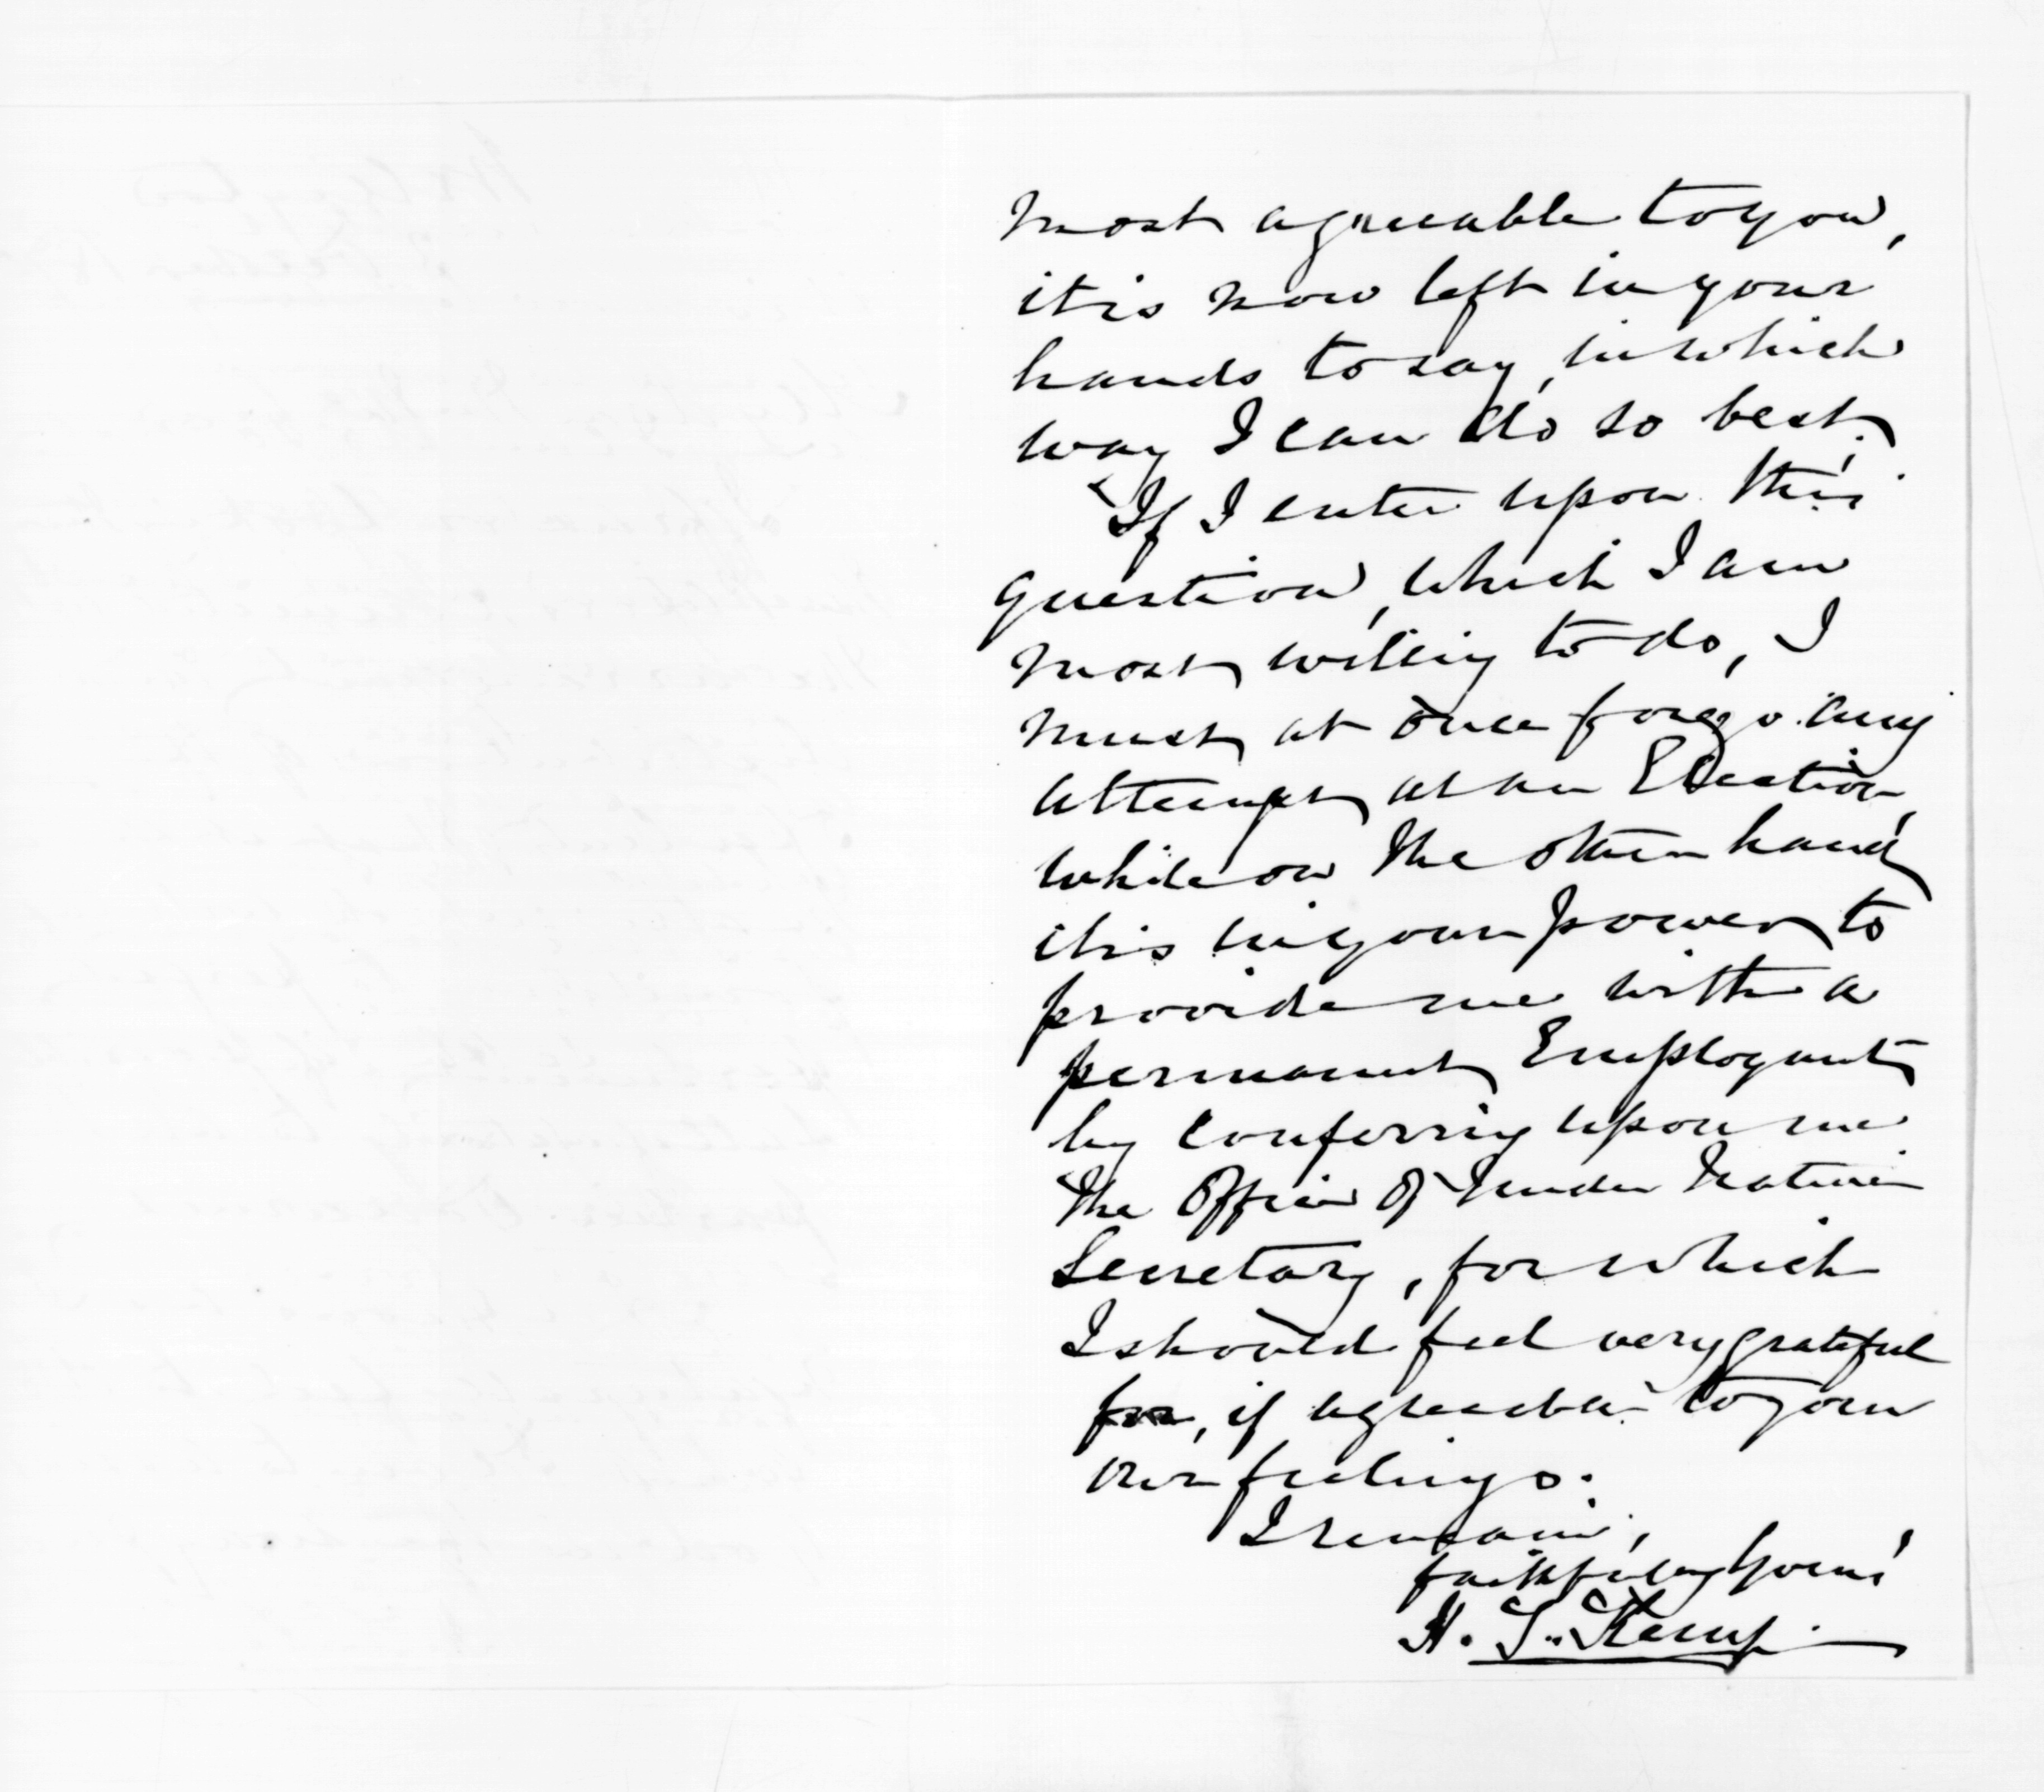 most agreeable to you,
it is now left in your
hands to say, in which
way I can do so best.
If I enter upon this
question, which I am
most willing to do, I
must at once forego any
attempt at an Election,
while on the other hand
it is in your power to
provide me with a
permanent Employmt
by conferring upon me
the Office of Under Native
Secretary, for which
I should feel very grateful
for, if agreeable to your
own feelings.
I remain,
faithfully Yours
H. T. Kemp.